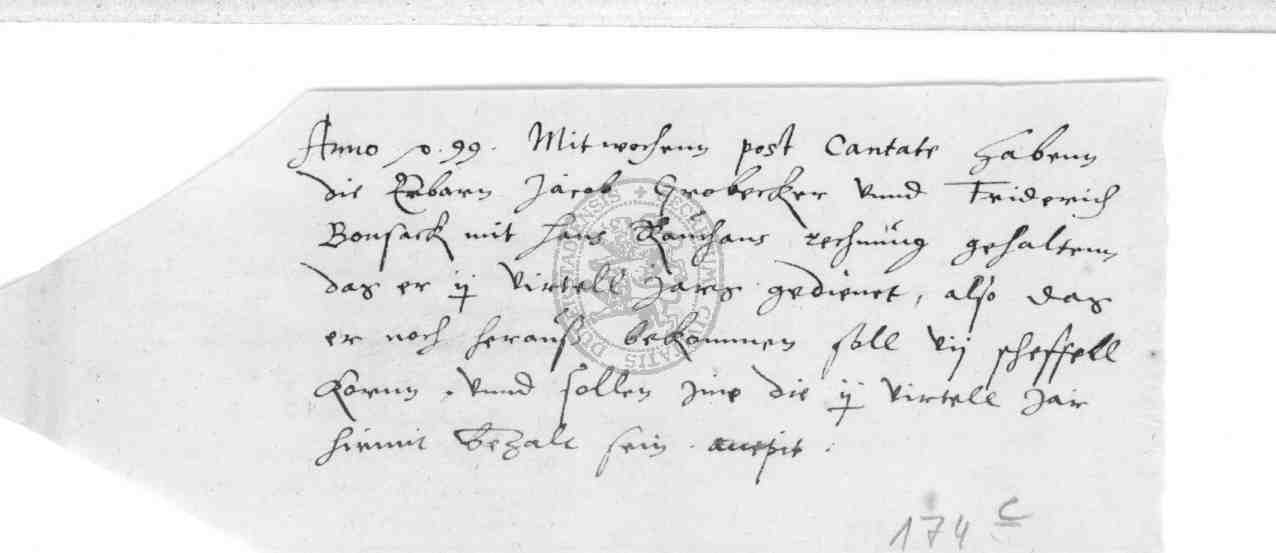 Anno p. 99. Mitwochenn post Cantate habenn
die Erbarn Jacob Grobecker vnnd Friderich
Bonsack mit Hans Rauchaus rechnung gehaltenn
das er ij virtell Jars gedienet, also das
er noch herauß bekommen soll vij scheffell
Kornn, vnnd sollen jme die ij virtell Jar
hirmit bezalt sein. accepit.
174 c